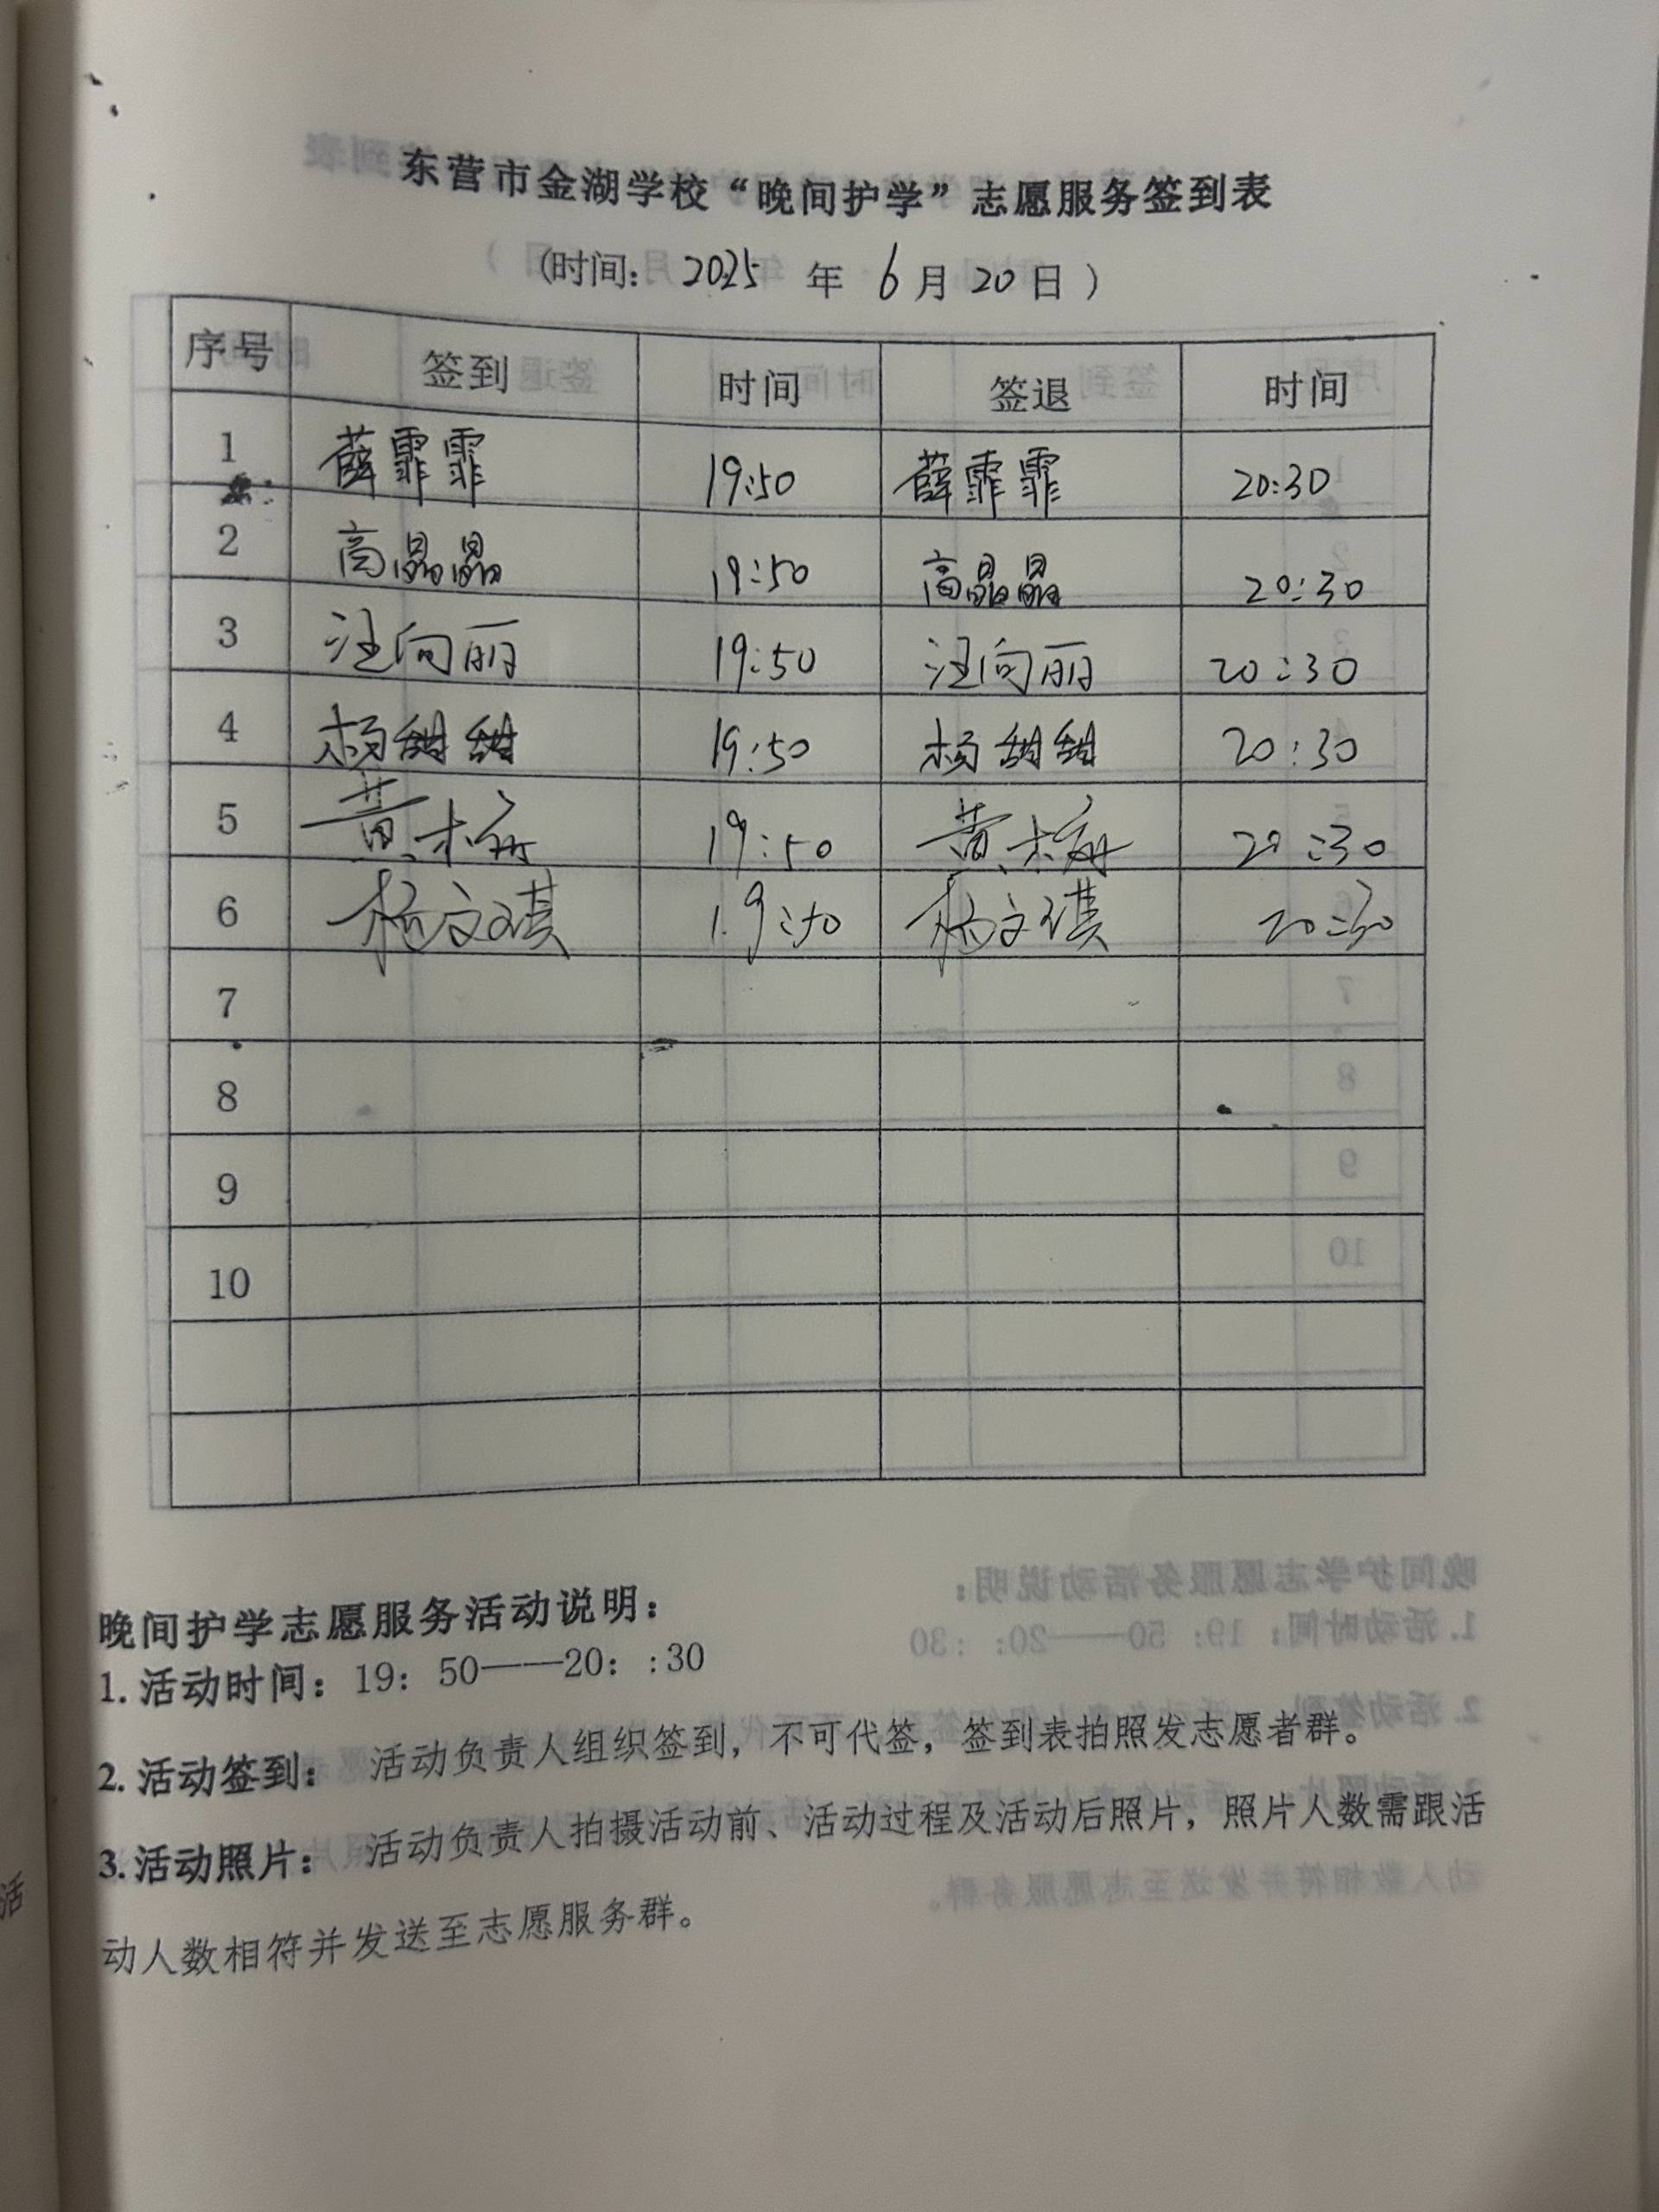 东营市金湖学校“晚间护学”志愿服务签到表
(时间： 2025 年 6 月 20 日 )
序号 签到 时间 签退 时间
1 薛霏霏 19:50 薛霏霏 20:30
2 高晶晶 19:50 高晶晶 20:30
3 汪向丽 19:50 汪向丽 20:30
4 杨甜甜 19:50 杨甜甜 20:30
5 黄 19:50 黄 20:30
6 杨文琪 19:50 杨文琪 20:30
7
8
9
10
晚间护学志愿服务活动说明：
1. 活动时间：19：50——20：:30
2. 活动签到： 活动负责人组织签到，不可代签，签到表拍照发志愿者群。
3. 活动照片： 活动负责人拍摄活动前、活动过程及活动后照片，照片人数需跟活
动人数相符并发送至志愿服务群。
活